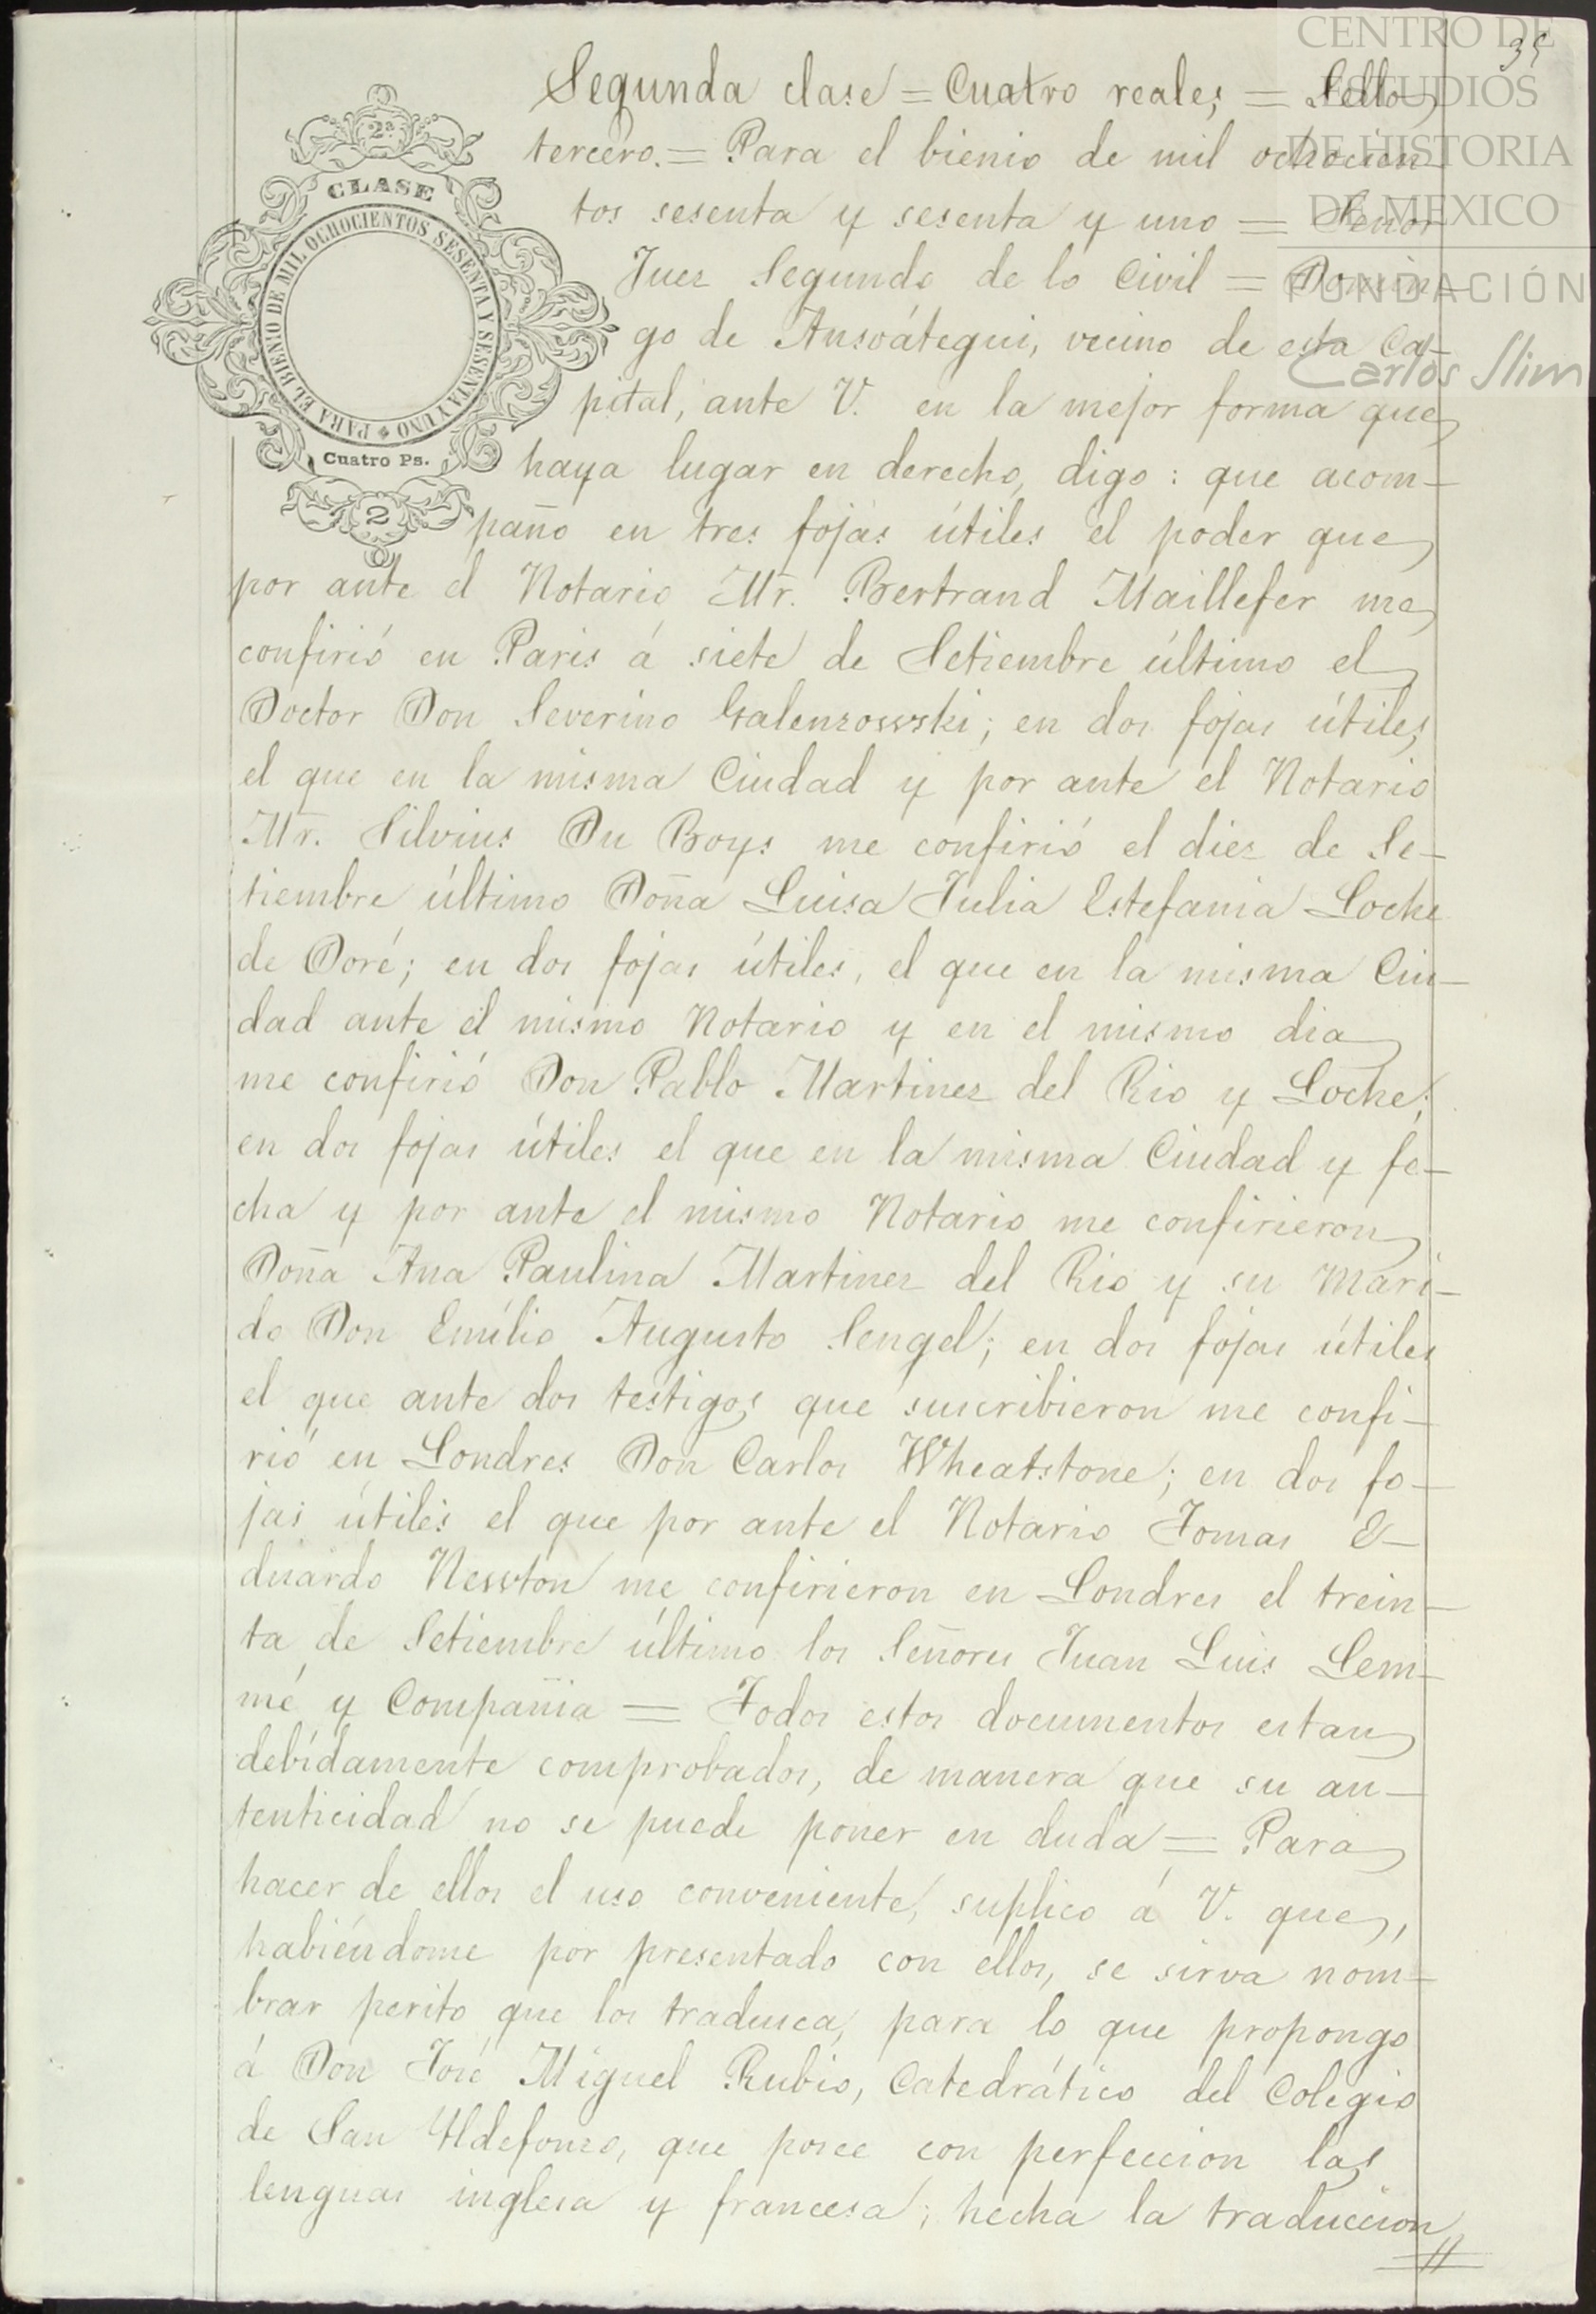 CENTRO DE
ESTUDIOS
DE HISTORIA
DE MEXICO
FUNDACIÓN
Carlos Slim
35
2ª
CLASE
PARA EL BIENIO DE MIL OCHOCIENTOS SESENTA Y SESENTA Y UNO
Cuatro Ps.
2
Segunda clase = Cuatro reales = Sello
tercero. = Para el bienio de mil ochocien-
tos sesenta y sesenta y uno = Señor
Juez Segundo de lo Civil = Domin-
go de Ansoátegui, vecino de esta Ca-
pital, ante V. en la mejor forma que
haya lugar en derecho, digo: que acom-
paño en tres fojas útiles el poder que
por ante el Notario Mr. Bertrand Maillefer me
confirió en Paris á siete de Setiembre último el
Doctor Don Severino Galenzowski; en dos fojas útiles,
el que en la misma Ciudad y por ante el Notario
Mr. Silvius Du Boys me confirió el diez de Se-
tiembre último Doña Luisa Julia Estefania Loche
de Doré; en dos fojas útiles, el que en la misma Ciu-
dad ante el mismo Notario y en el mismo dia
me confirió Don Pablo Martinez del Rio y Loche;
en dos fojas útiles el que en la misma Ciudad y fe-
cha y por ante el mismo Notario me confirieron
Doña Ana Paulina Martinez del Rio y su mari-
do Don Emílio Augusto Sengel; en dos fojas útiles
el que ante dos testigos que suscribieron me confi-
rió en Londres Don Carlos Wheatstone; en dos fo-
jas útiles el que por ante el Notario Tomas E-
duardo Newton me confirieron en Londres el trein-
ta de Setiembre último los Señores Juan Luis Lem-
mé y Compañia = Todos estos documentos estan
debídamente comprobados, de manera que su au-
tenticidad no se puede poner en duda = Para
hacer de ellos el uso conveniente, suplico á V. que,
habiéndome por presentado con ellos, se sirva nom-
brar perito que los traduzca, para lo que propongo
á Don José Miguel Rubio, Catedrático del Colegio
de San Yldefonso, que posee con perfeccion las
lenguas inglesa y francesa; hecha la traduccion